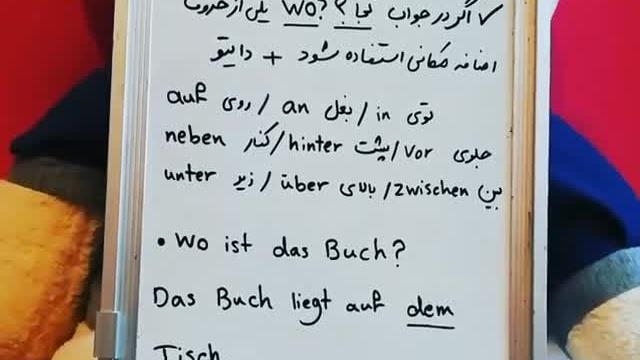 ✓ اگر در جواب کجا؟ Wo? یکی از حروف
اضافه مکانی استفاده شود + داتیو
توی in / بغل an / روی auf
جلوی vor / پشت hinter / کنار neben
بین zwischen / بالای über / زیر unter
• Wo ist das Buch?
Das Buch liegt auf dem
Tisch